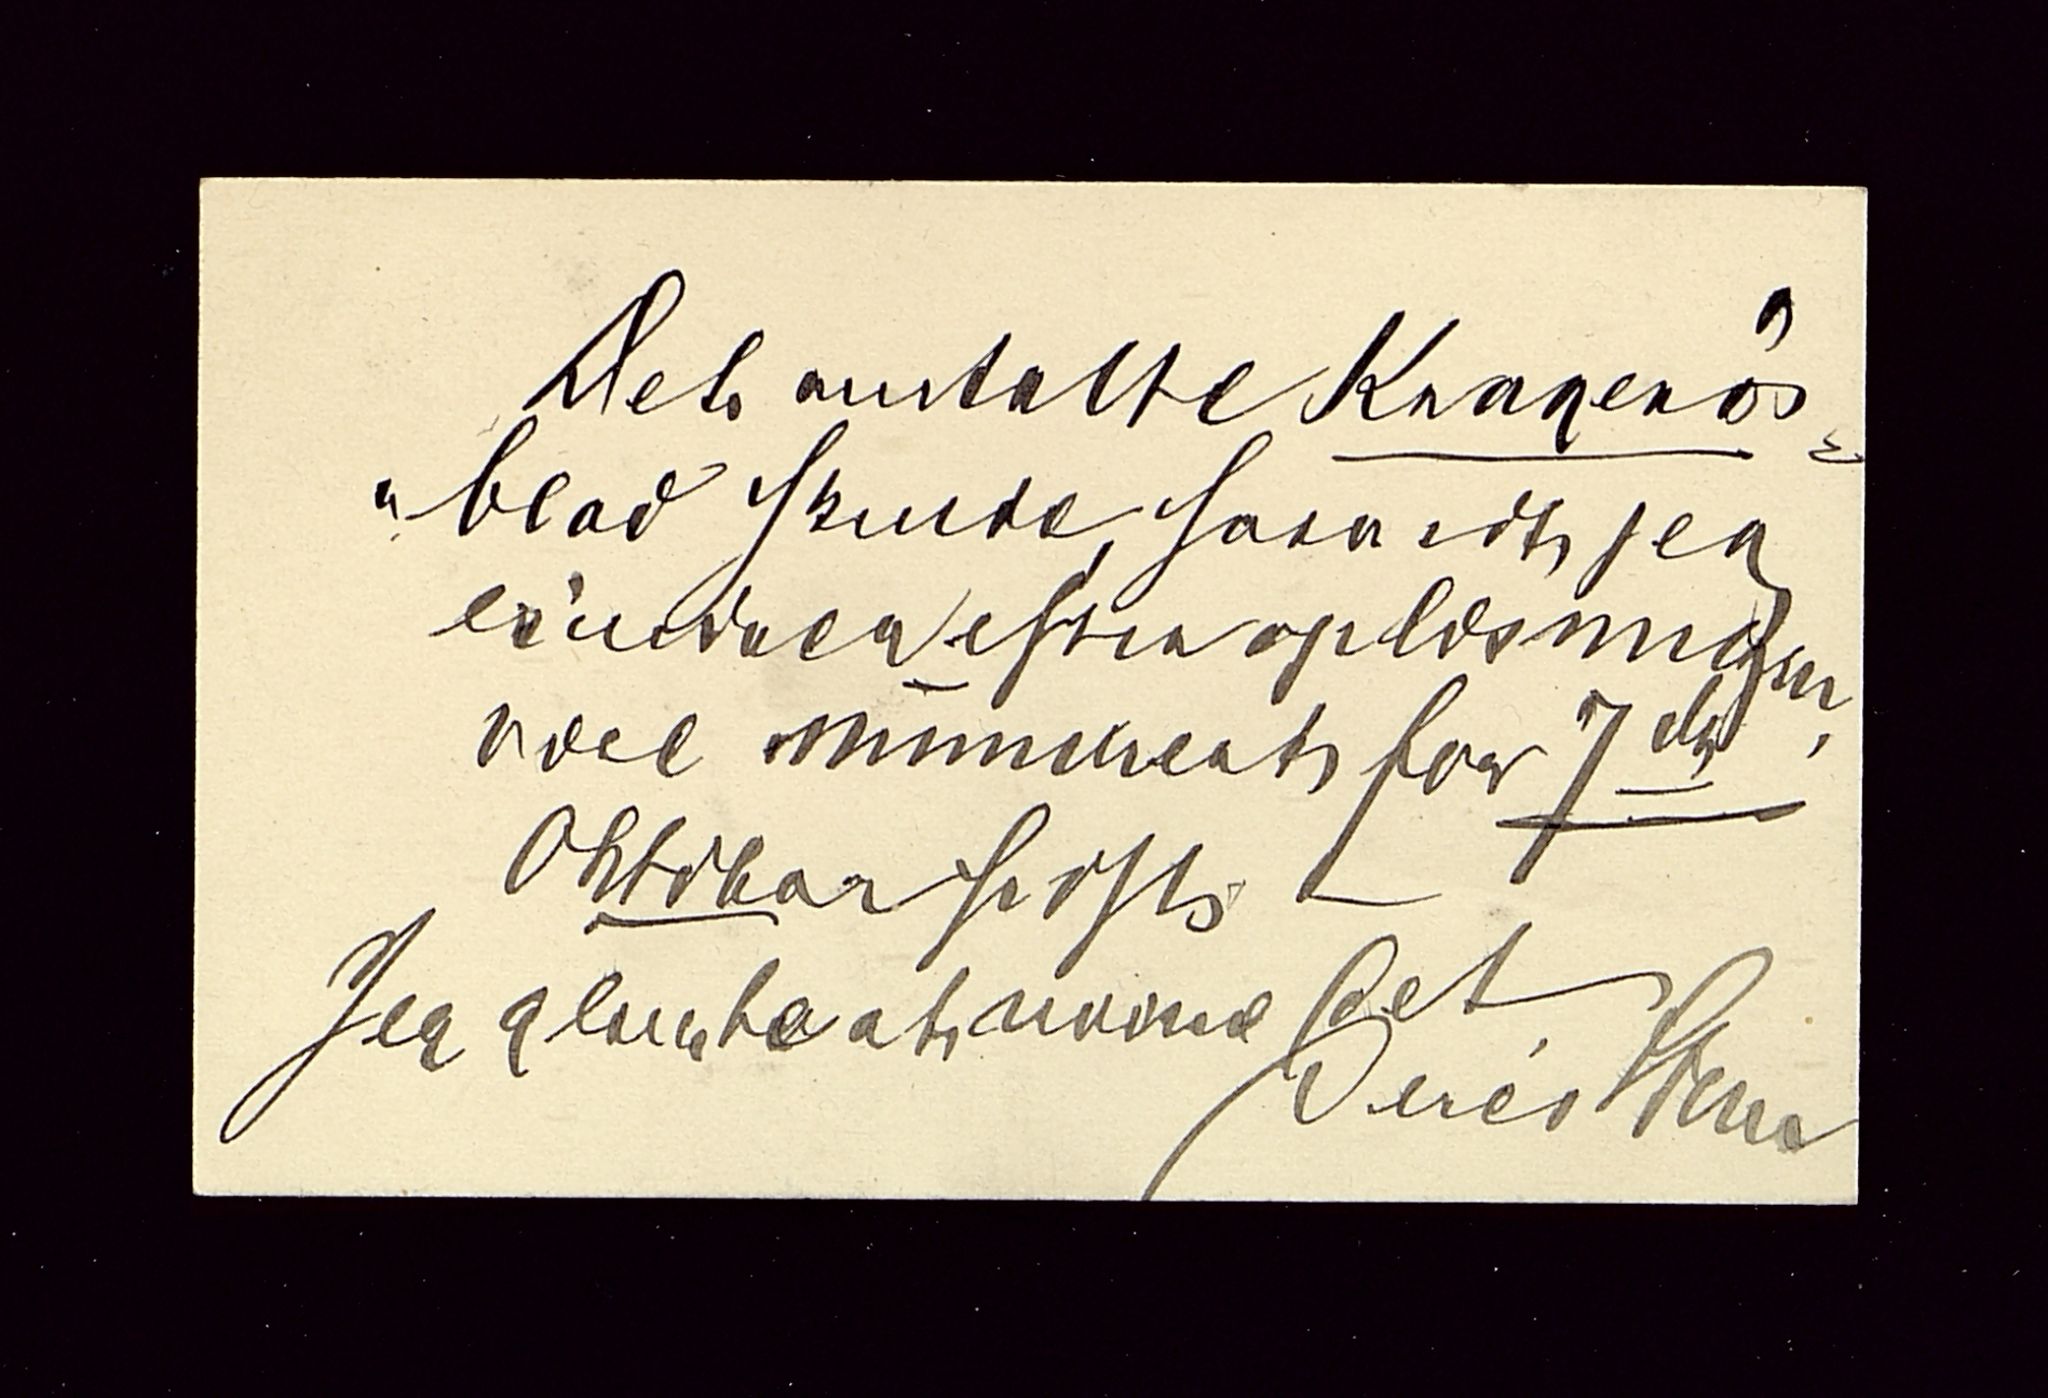 Det omtalte Kragerøs
blad skulde, saavidt jeg
erindrer efter opløsningen,
være nummeret for 7de
Oktober
Jeg glemte at nævne det
Deres